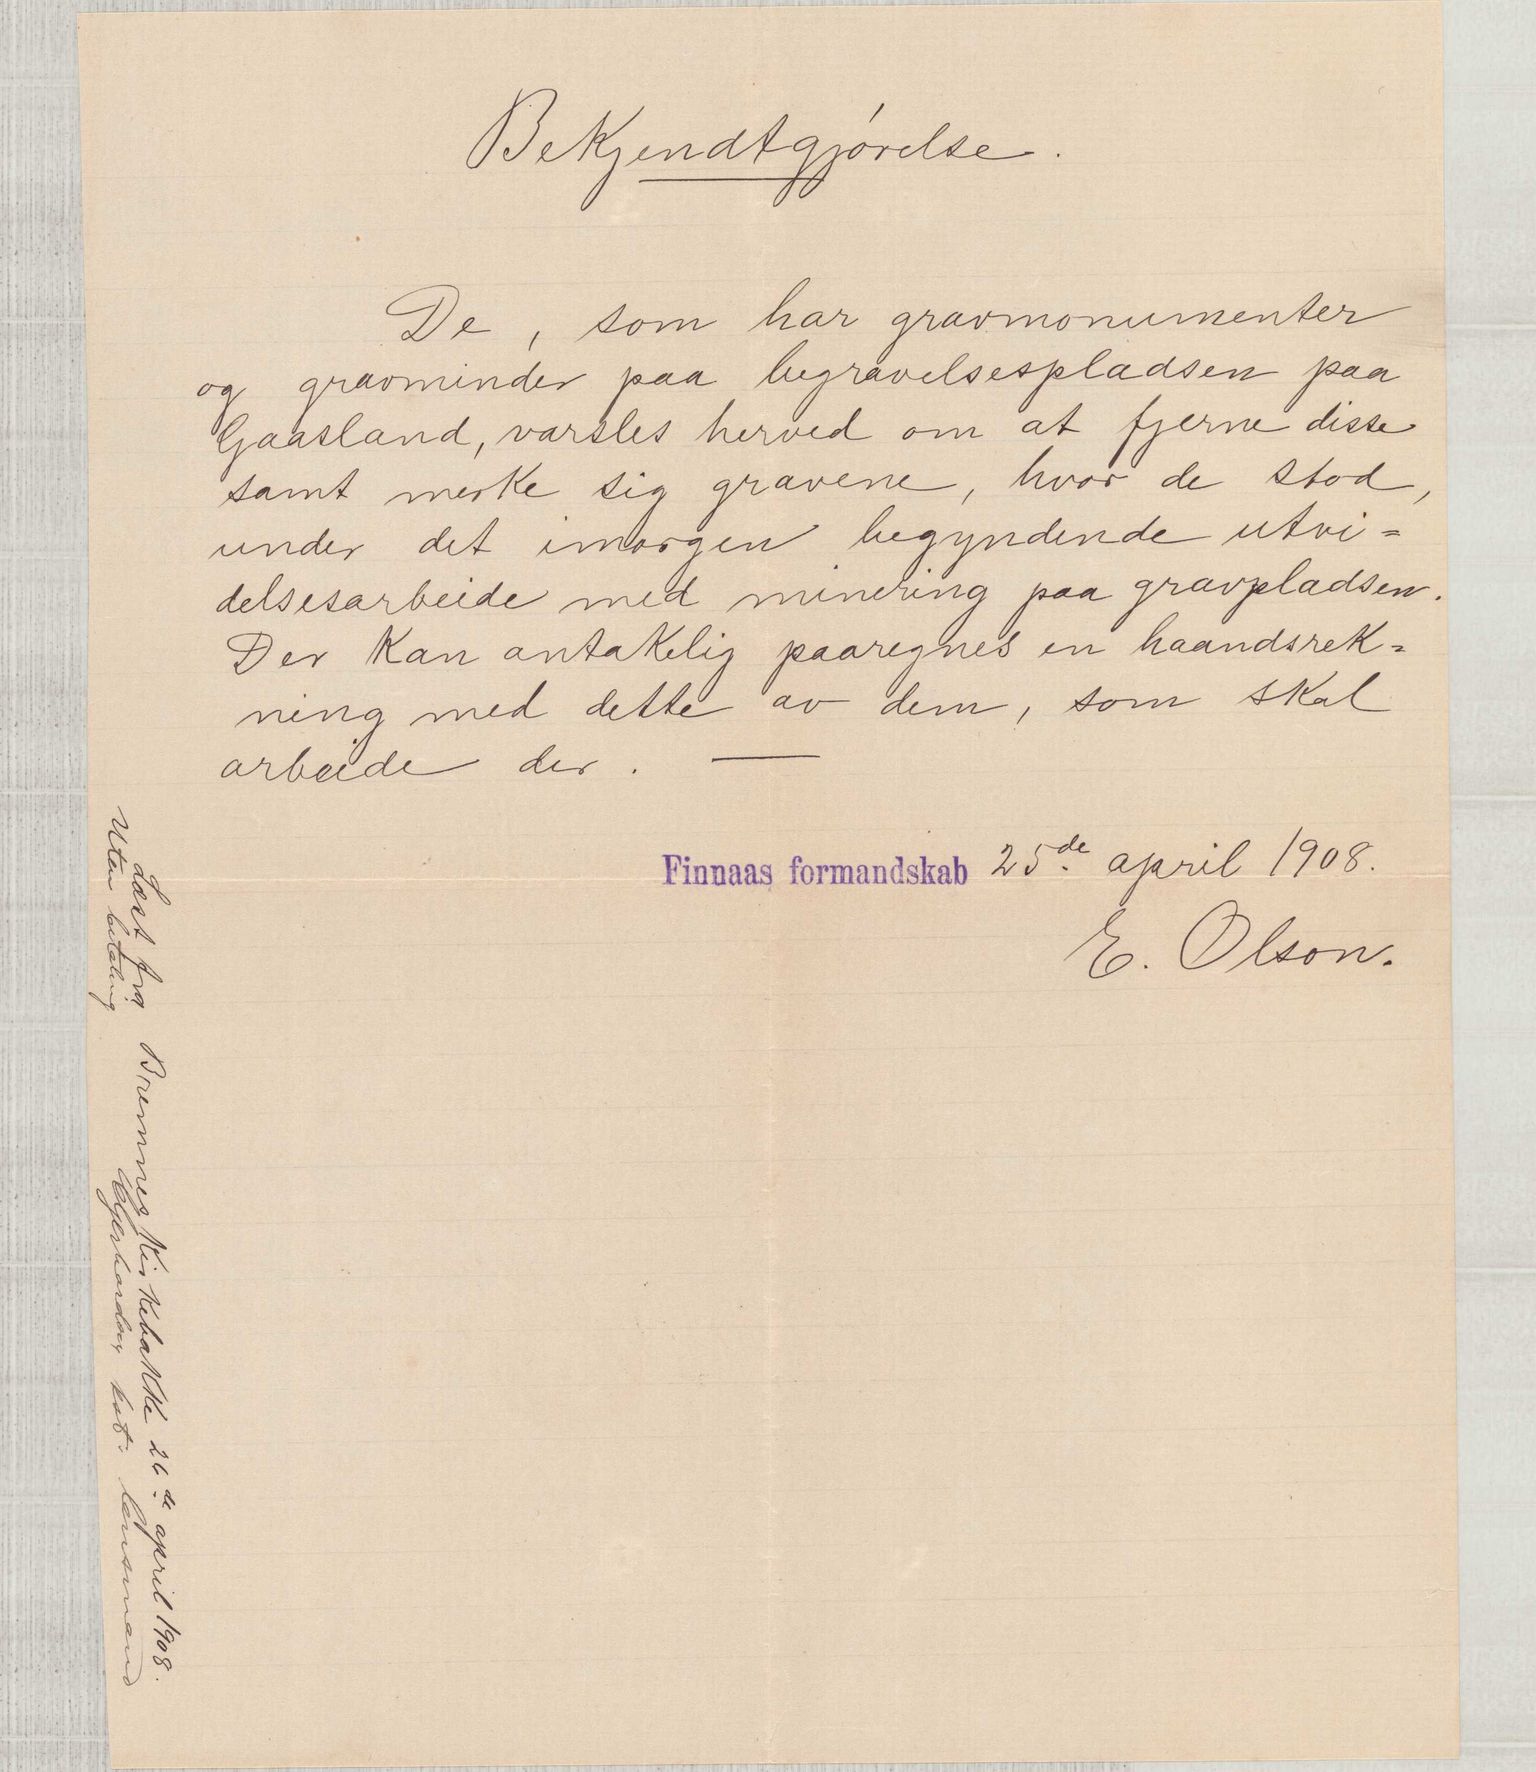 Bekjendtgjórelse.
De, som har gravmonumenter
og gravminder paa begravelsespladsen paa
Gaasland, varsles herved om at fjerne disse
samt merke sig gravene, hvor de stod,
under det imorgen begyndende utvi=
delsesarbeide med minering paa gravpladsen.
Der kan antakelig paaregnes en haandsrek=
ning med dette av dem, som skal
arbeide der. —
Finnaas formandskab 25de. april 1908.
E. Olson.
Læst fra Bremnes Kirkebakke 26de. april 1908.
Uten betaling
kst. lensmand